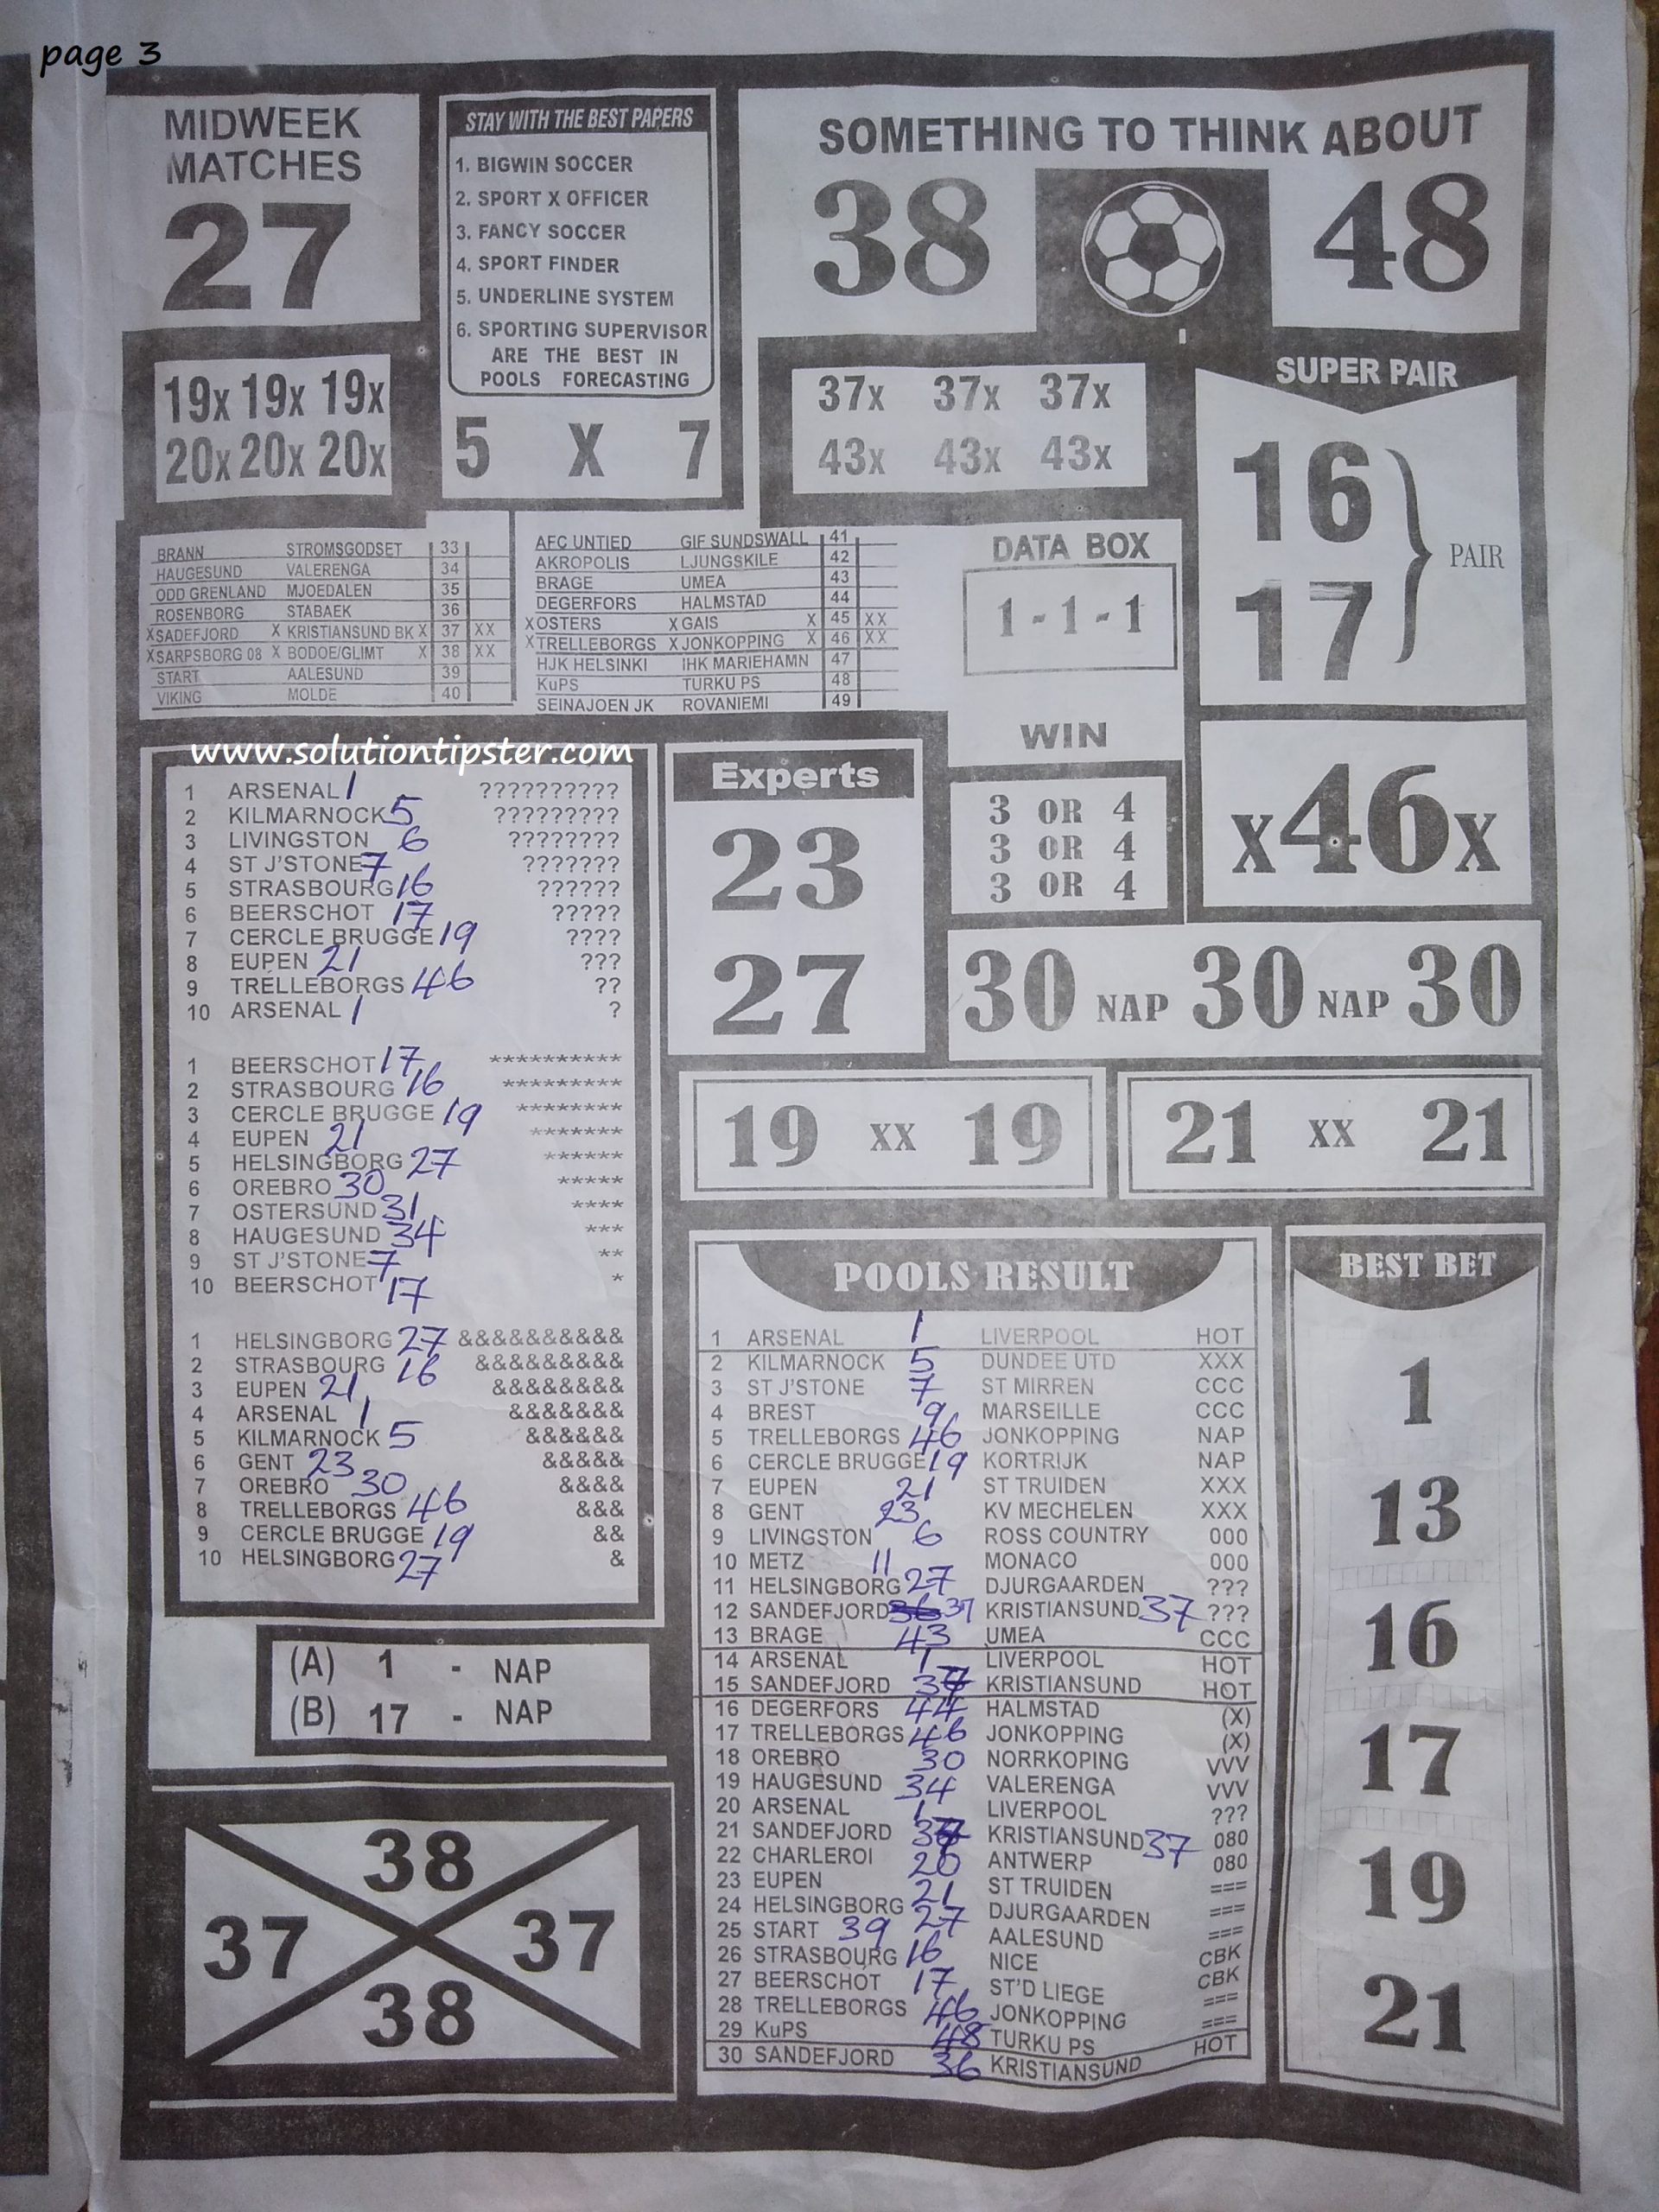 page 3
MIDWEEK
MATCHES
27
STAY WITH THE BEST PAPERS
1. BIGWIN SOCCER
2. SPORT X OFFICER
3. FANCY SOCCER
4. SPORT FINDER
5. UNDERLINE SYSTEM
6. SPORTING SUPERVISOR
ARE THE BEST IN
POOLS FORECASTING
5 X 7
SOMETHING TO THINK ABOUT
38 48
19x 19x 19x
20x 20x 20x
37x 37x 37x
43x 43x 43x
SUPER PAIR
16
17
PAIR
BRANN STROMSGODSET 33
HAUGESUND VALERENGA 34
ODD GRENLAND MJOEDALEN 35
ROSENBORG STABAEK 36
X SADEFJORD X KRISTIANSUND BK X 37 XX
X SARPSBORG 08 X BODOE/GLIMT X 38 XX
START AALESUND 39
VIKING MOLDE 40
AFC UNTIED GIF SUNDSWALL 41
AKROPOLIS LJUNGSKILE 42
BRAGE UMEA 43
DEGERFORS HALMSTAD 44
X OSTERS X GAIS X 45 XX
X TRELLEBORGS X JONKOPPING X 46 XX
HJK HELSINKI IHK MARIEHAMN 47
KuPS TURKU PS 48
SEINAJOEN JK ROVANIEMI 49
DATA BOX
1 - 1 - 1
WIN
3 OR 4
3 OR 4
3 OR 4
x46x
www.solutiontipster.com
1 ARSENAL 1 ??????????
2 KILMARNOCK 5 ?????????
3 LIVINGSTON 6 ????????
4 ST J'STONE 7 ???????
5 STRASBOURG 16 ??????
6 BEERSCHOT 17 ?????
7 CERCLE BRUGGE 19 ????
8 EUPEN 21 ???
9 TRELLEBORGS 46 ??
10 ARSENAL 1 ?
1 BEERSCHOT 17 **********
2 STRASBOURG 16 *********
3 CERCLE BRUGGE 19 ********
4 EUPEN 21 *******
5 HELSINGBORG 27 ******
6 OREBRO 30 *****
7 OSTERSUND 31 ****
8 HAUGESUND 34 ***
9 ST J'STONE 7 **
10 BEERSCHOT 17 *
1 HELSINGBORG 27 &&&&&&&&&&
2 STRASBOURG 16 &&&&&&&&&
3 EUPEN 21 &&&&&&&&
4 ARSENAL 1 &&&&&&&
5 KILMARNOCK 5 &&&&&&
6 GENT 23 &&&&&
7 OREBRO 30 &&&&
8 TRELLEBORGS 46 &&&
9 CERCLE BRUGGE 19 &&
10 HELSINGBORG 27 &
Experts
23
27
30 NAP 30 NAP 30
19 XX 19
21 XX 21
(A) 1 - NAP
(B) 17 - NAP
38
37 37
38
POOLS RESULT
1 ARSENAL 1 LIVERPOOL HOT
2 KILMARNOCK 5 DUNDEE UTD XXX
3 ST J'STONE 7 ST MIRREN CCC
4 BREST 9 MARSEILLE CCC
5 TRELLEBORGS 46 JONKOPPING NAP
6 CERCLE BRUGGE 19 KORTRIJK NAP
7 EUPEN 21 ST TRUIDEN XXX
8 GENT 23 KV MECHELEN XXX
9 LIVINGSTON 6 ROSS COUNTRY 000
10 METZ 11 MONACO 000
11 HELSINGBORG 27 DJURGAARDEN ???
12 SANDEFJORD 37 KRISTIANSUND 37 ???
13 BRAGE 43 UMEA CCC
14 ARSENAL 1 LIVERPOOL HOT
15 SANDEFJORD 37 KRISTIANSUND HOT
16 DEGERFORS 44 HALMSTAD (X)
17 TRELLEBORGS 46 JONKOPPING (X)
18 OREBRO 30 NORRKOPING VVV
19 HAUGESUND 34 VALERENGA VVV
20 ARSENAL 1 LIVERPOOL ???
21 SANDEFJORD 37 KRISTIANSUND 37 080
22 CHARLEROI 20 ANTWERP 080
23 EUPEN 21 ST TRUIDEN ===
24 HELSINGBORG 27 DJURGAARDEN ===
25 START 39 AALESUND ===
26 STRASBOURG 16 NICE CBK
27 BEERSCHOT 17 ST'D LIEGE CBK
28 TRELLEBORGS 46 JONKOPPING ===
29 KuPS 48 TURKU PS ===
30 SANDEFJORD 36 KRISTIANSUND HOT
BEST BET
1
13
16
17
19
21